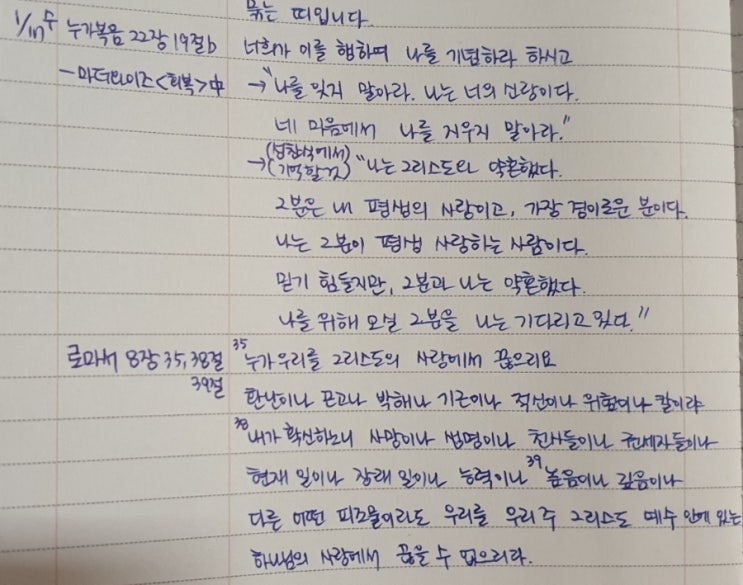 묶는 띠입니다.
1/17 수 누가복음 22장 19절b 너희가 이를 행하며 나를 기념하라 하시고
- 마더와이즈 <회복> 中 → "나를 잊지 말아라. 나는 너의 신랑이다.
네 마음에서 나를 지우지 말아라."
→ (성찬식에서 기억할 것) "나는 그리스도와 약혼했다.
그분은 내 평생의 사랑이고, 가장 경이로운 분이다.
나는 그분이 평생 사랑하는 사람이다.
믿기 힘들지만, 그분과 나는 약혼했다.
나를 위해 오실 그분을 나는 기다리고 있다."
로마서 8장 35, 38절 35 누가 우리를 그리스도의 사랑에서 끊으리요
39절 환난이나 곤고나 박해나 기근이나 적신이나 위험이나 칼이랴
38 내가 확신하노니 사망이나 생명이나 천사들이나 권세자들이나
현재 일이나 장래 일이나 능력이나 39 높음이나 깊음이나
다른 어떤 피조물이라도 우리를 우리 주 그리스도 예수 안에 있는
하나님의 사랑에서 끊을 수 없으리라.